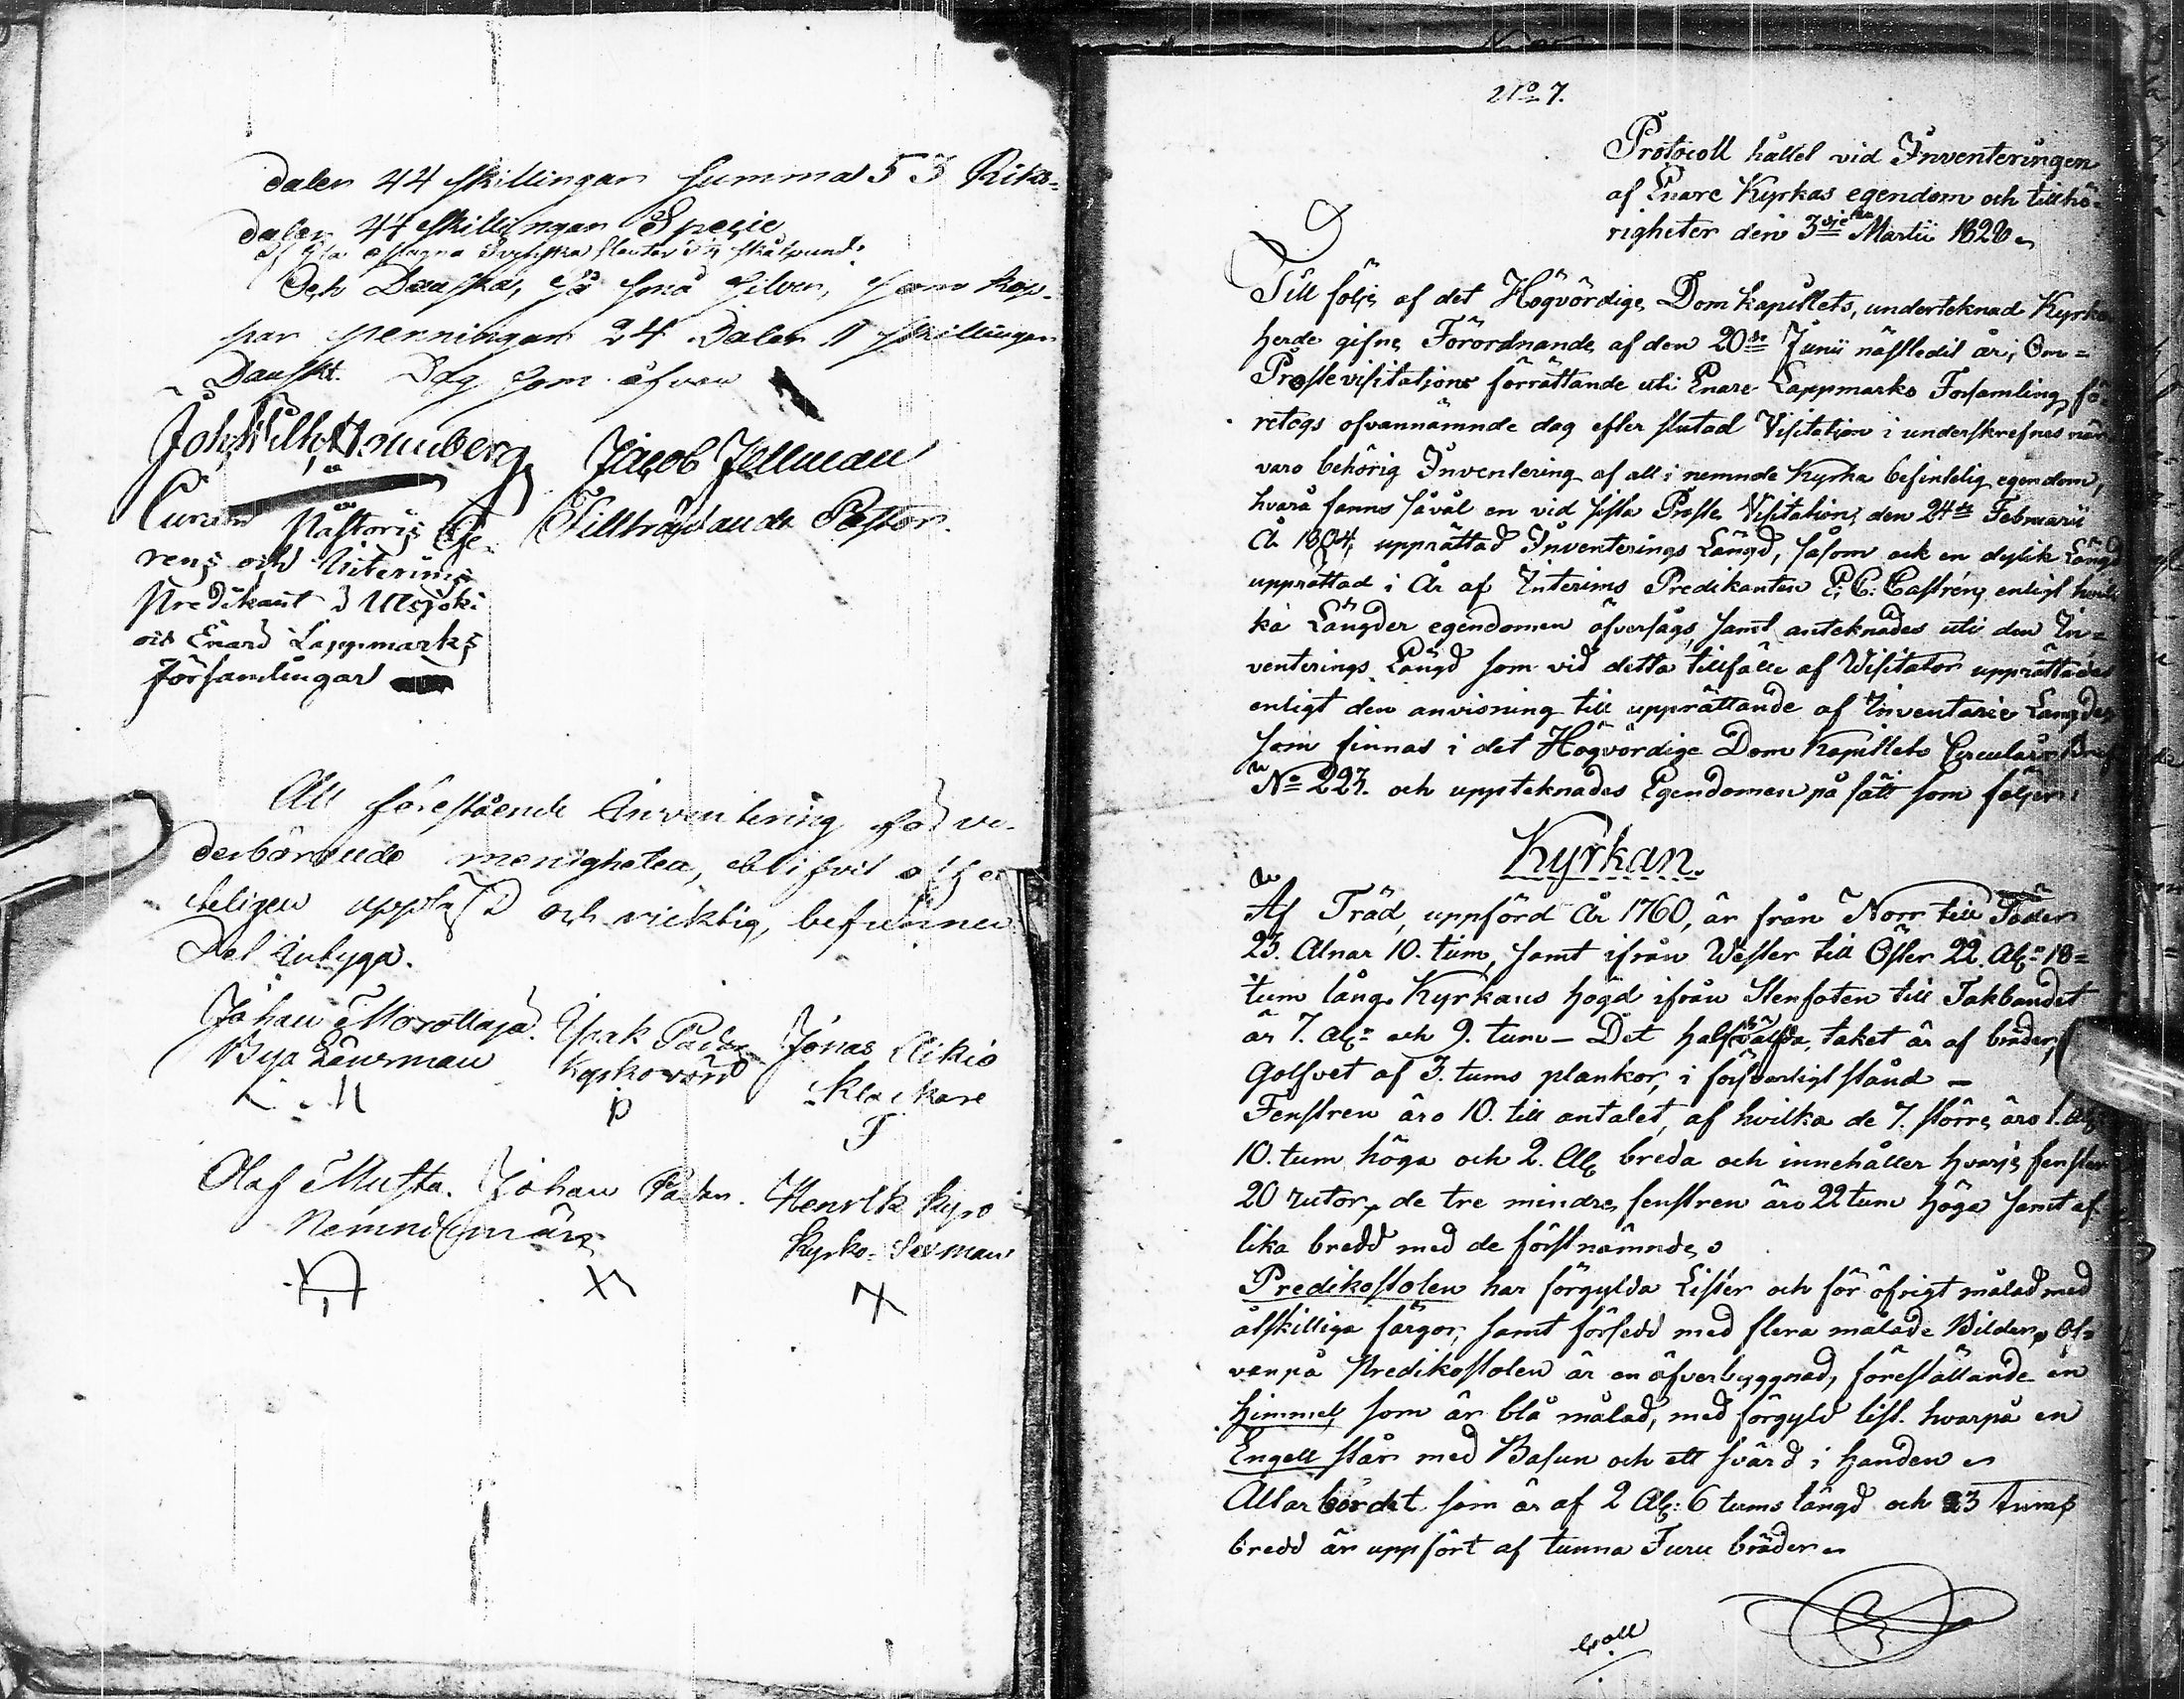 daler 44 skillingar summa 53 Riks-
daler 44 skillingar Specie
Svenska slantar skålpund.
Och Danska, så små silver, som kop-
par penningar 24 Daler 11 skillingar
Danskt. Dag som ofvan
Joh: Wilh: Stomberg Jacob Fellman
Curam Pastoris Ge- Tillträdande Pastor.
rens och Interims
Predikant i Utsjoki
och Enare Lappmarks
Församlingar
Att förestående Inventering för ve-
derbörande menigheten, blifvit
teligen uppläst och ricktig befunnen
Det intyga.
Johan Morottaja. Isak Padar Jonas Aikio
Bya Länsman Kyrkovärd Klockare
P
Olaf Musta. Johan Padar. Henrik Kyrö
Nämndemän Kyrko-Sexman
No 7.
Protocoll hållet vid Inventeringen
af Enare Kyrkas egendom och tillhö-
righeter den 3dje Martii 1828
Till följe af det Högvördige Dom kapitlets, underteknad Kyrko
herde gifne Förordnande af den 20de Junii nästledit år, om
Prostevisitations förrättande uti Enare Lappmarks Församling, fö-
retogs ofvannämnde dag efter slutad Visitation i underskrefnes när
varo behörig Inventering af all i nemnde Kyrka befintelig egendom,
hvarå fanns såväl en vid sista Proste Visitation den 24de Februarii
År 1804 upprättad Inventerings Längd, såsom ock en dylik Längd
upprättad i År af Interims Predikanten E: C: Castrén, enligt hvil
ka Längder egendomen öfversågs, samt anteknades uti den In-
venterings Längd som vid detta tillfälle af Visitator upprättades
enligt den anvisning till upprättande af Inventarie Längder
som finnas i det Högvördige Dom Kapitlets Circulair Bref
No 223. och uppteknades Egendomen på sätt som följer:
Kyrkan.
Af Träd, uppförd År 1760, är från Norr till Söder
23. Alnar 10. tum, samt ifrån Wester till Öster 22. Aln 18
tum lång. Kyrkans högd ifrån Stenfoten till Takbandet
är 7. Aln och 9. tum - Det halfvälfda taket är af bräder,
Golfvet af 3. tums plankor, i försvarligt stånd -
Fenstren äro 10. till antalet, af hvilka de 7. större äro 1. Aln
10. tum höga och 2. Aln breda och innehåller hvarje fenster
20 rutor, de tre mindre fenstren äro 22 tum höga samt af
lika bredd med de förstnämnde.
Predikostolen har förgylda Lister och för öfrigt målad med
åtskilliga färgor, samt försedd med flera målade Bilder. Of-
vanpå Predikostolen är en öfverbyggnad, föreställande en
Himmel som är blå målad, med förgyld list. hvarpå en
Engell står med Basun och ett svärd i handen
Altarbordet som är af 2 Aln: 6 tums längd och 23 tums
bredd är uppfört af tunna Furu bräder